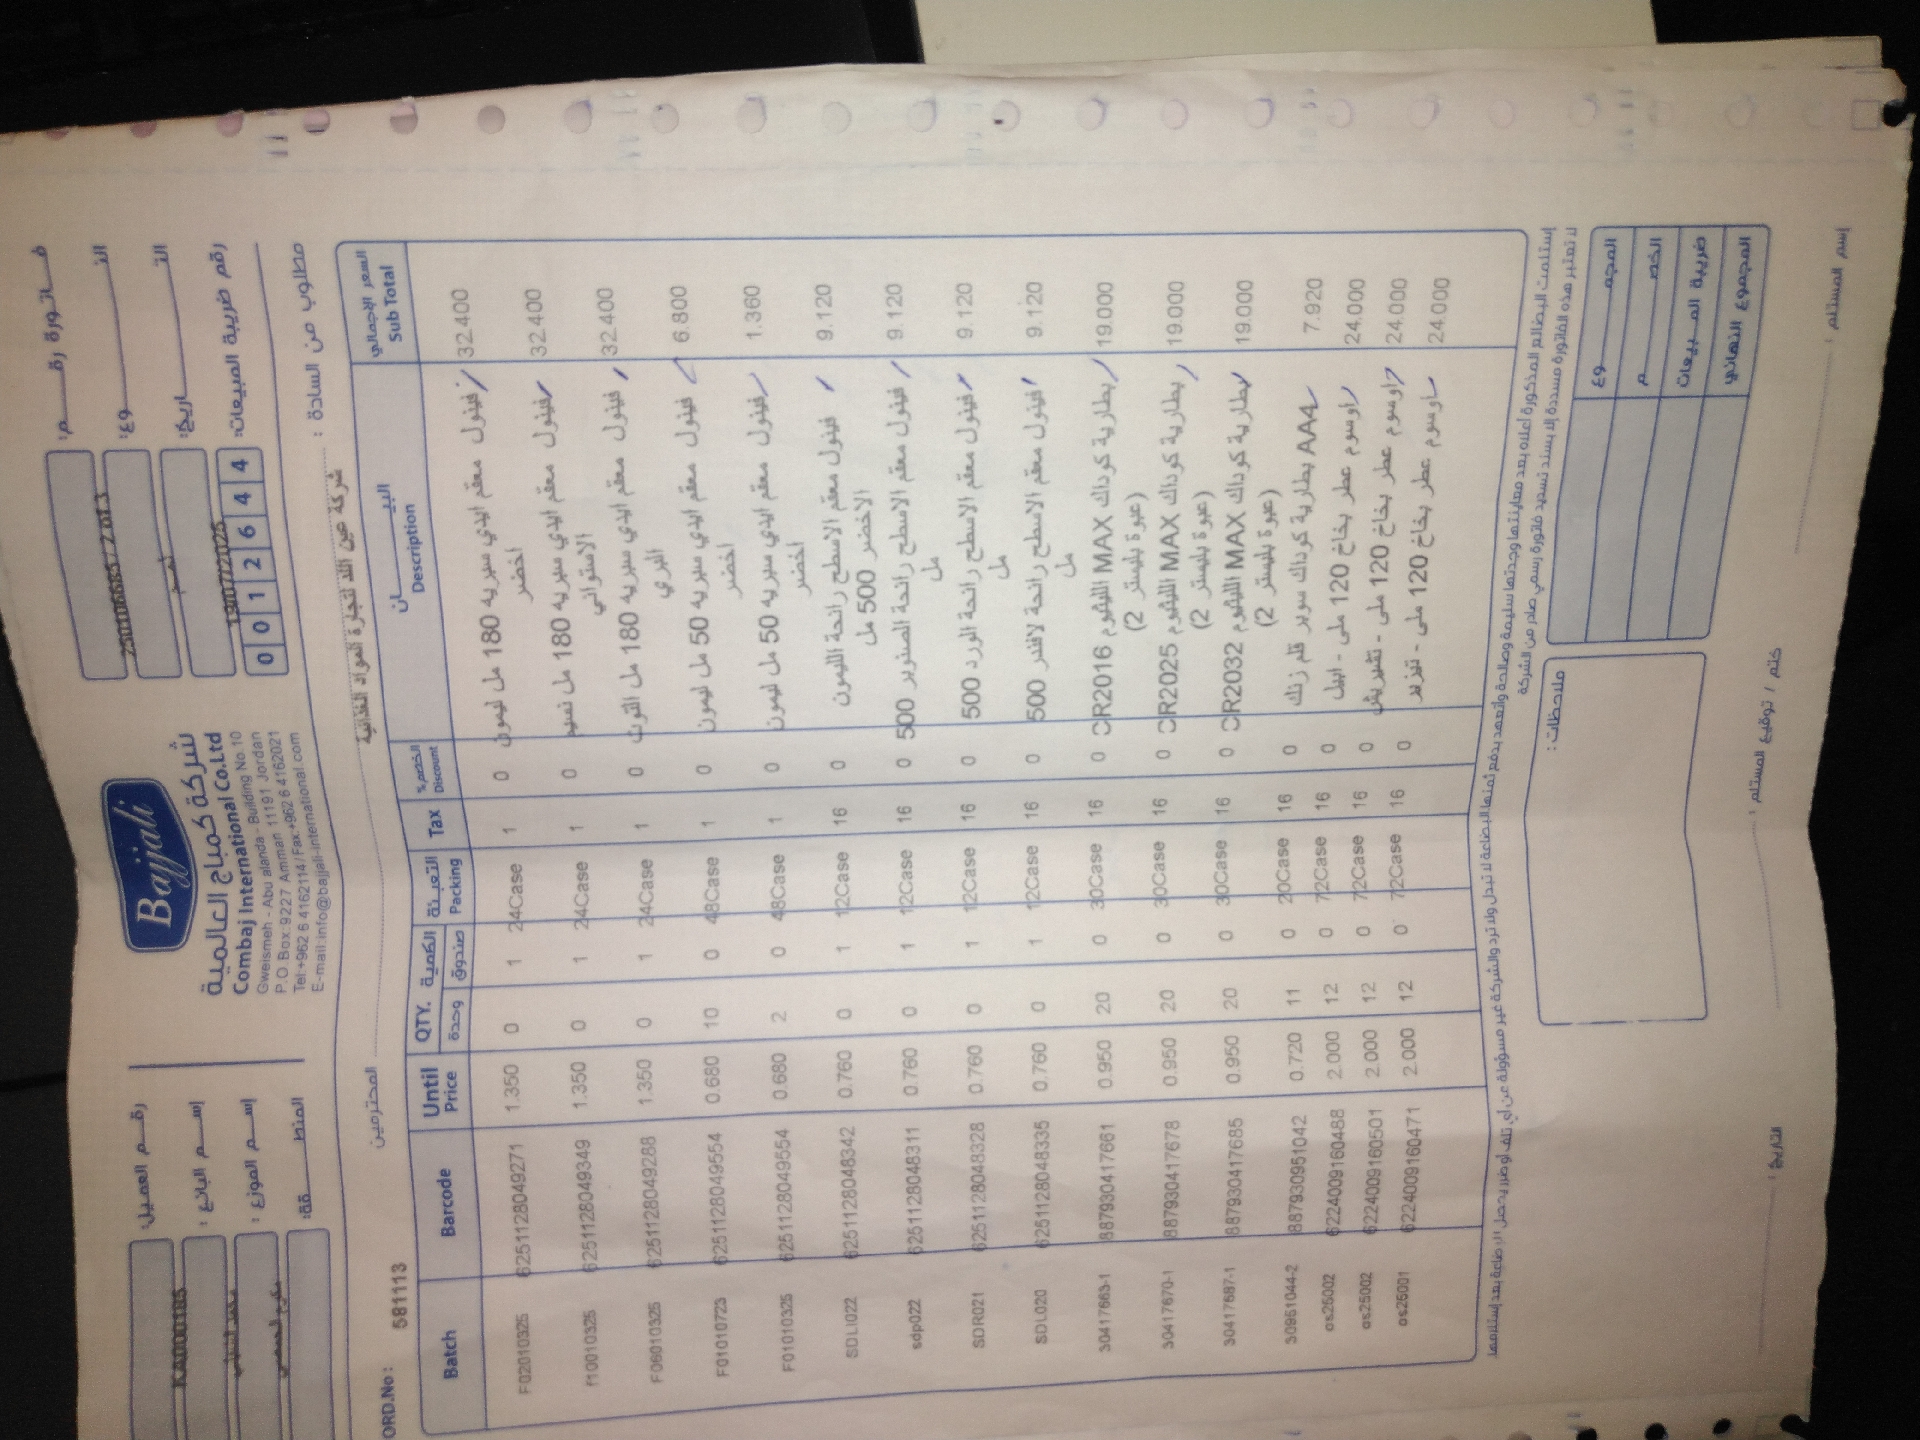 Bajjali
شركة كمباج العالمية
Combaj International Co.Ltd
Gweismeh - Abu alanda - Building No.10
P.O. Box:9227 Amman 11191 Jordan
Tel:+962 6 4162114/Fax:+962 6 4162021
E-mail:info@bajjali-international.com
فاتورة رقم:
2 of 3
النوع:
التاريخ: 19/07/2025
رقم ضريبة المبيعات: 0 0 1 2 6 4 4
رقم العميل: KA000185
إسم البائع:
إسم الموزع:
المنطقة:
مطلوب من السادة: شركة عين اللد لتجارة المواد الغذائية المحترمين
ORD.No: 581113
Batch Barcode Until Price QTY. الكمية وحدة صندوق التعبئة Packing Tax الخصم % Discount البيان Description السعر الإجمالي Sub Total
F02010325 6251128049271 1.350 0 1 24Case 1 0 فينول معقم ايدي سبريه 180 مل ليمون اخضر 32.400
f10010325 6251128049349 1.350 0 1 24Case 1 0 فينول معقم ايدي سبريه 180 مل نسيم الاستوائي 32.400
F06010325 6251128049288 1.350 0 1 24Case 1 0 فينول معقم ايدي سبريه 180 مل التوت البري 32.400
F01010723 6251128049554 0.680 10 0 48Case 1 0 فينول معقم ايدي سبريه 50 مل ليمون اخضر 6.800
F01010325 6251128049554 0.680 2 0 48Case 1 0 فينول معقم ايدي سبريه 50 مل ليمون اخضر 1.360
SDLI022 6251128048342 0.760 0 1 12Case 16 0 فينول معقم الاسطح رائحة الليمون الاخضر 500 مل 9.120
sdp022 6251128048311 0.760 0 1 12Case 16 0 فينول معقم الاسطح رائحة الصنوبر 500 مل 9.120
SDR021 6251128048328 0.760 0 1 12Case 16 0 فينول معقم الاسطح رائحة الورد 500 مل 9.120
SDL020 6251128048335 0.760 0 1 12Case 16 0 فينول معقم الاسطح رائحة لافندر 500 مل 9.120
30417663-1 887930417661 0.950 20 0 30Case 16 0 بطارية كوداك MAX الليثيوم CR2016 (عبوة بليستر 2) 19.000
30417670-1 887930417678 0.950 20 0 30Case 16 0 بطارية كوداك MAX الليثيوم CR2025 (عبوة بليستر 2) 19.000
30417687-1 887930417685 0.950 20 0 30Case 16 0 بطارية كوداك MAX الليثيوم CR2032 (عبوة بليستر 2) 19.000
30951044-2 887930951042 0.720 11 0 20Case 16 0 بطارية كوداك سوبر قلم زنك AA4 7.920
os25002 6224009160488 2.000 12 0 72Case 16 0 اوسوم عطر بخاخ 120 ملي - ابيل 24.000
os25002 6224009160501 2.000 12 0 72Case 16 0 اوسوم عطر بخاخ 120 ملي - 24.000
os25001 6224009160471 2.000 12 0 72Case 16 0 اوسوم عطر بخاخ 120 ملي - تيزير 24.000
إستلمت البضائع المذكورة أعلاه بعد معاينتها ووجدتها سليمة وصالحة واتعهد بدفع ثمنها البضاعة لا تبدل ولا ترد والشركة غير مسؤولة عن أي تلف أو ضرر يحصل للبضاعة بعد إستلامها
لا تعتبر هذه الفاتورة مسددة إلا بسند تسديد فاتورة رسمي صادر من الشركة
المجموع
الخصم
ضريبة المبيعات
المجموع النهائي
ملاحظات:
إسم المستلم:
ختم / توقيع المستلم:
التاريخ: